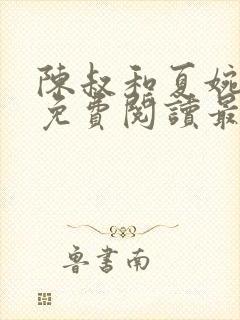 陳叔和夏婉
免費閱讀最
魯書南